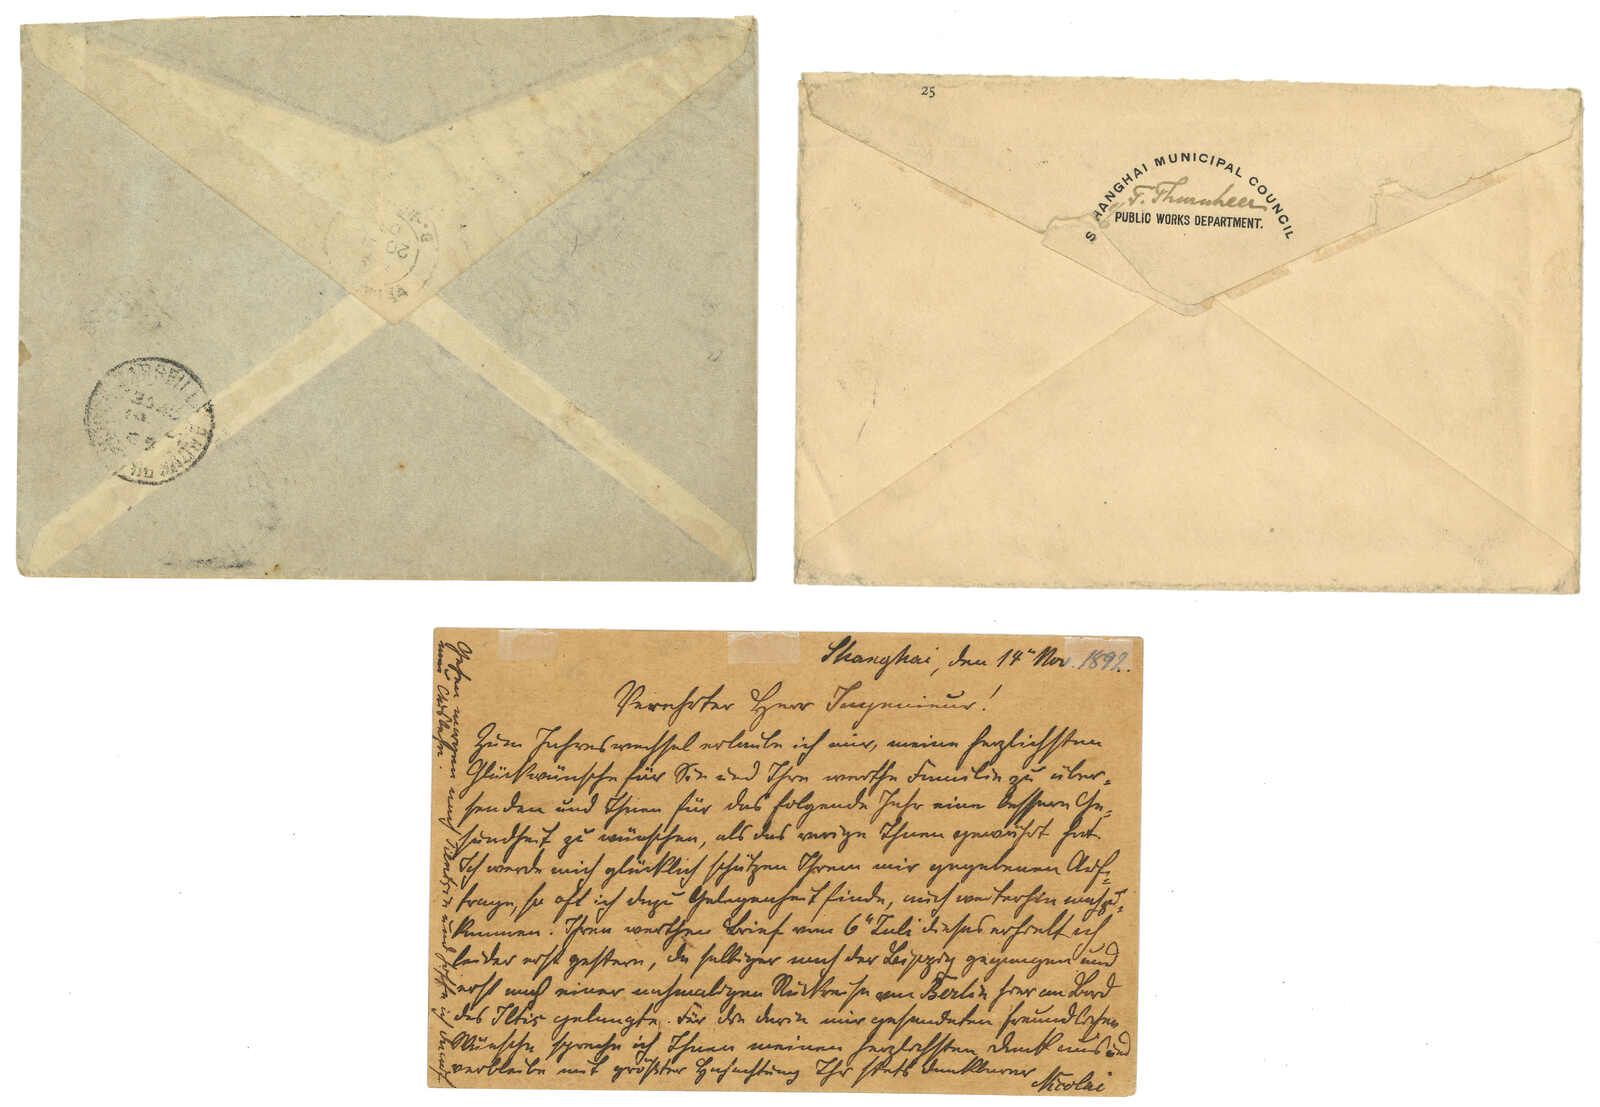 25
SHANGHAI MUNICIPAL COUNCIL
F. Thurnheer
PUBLIC WORKS DEPARTMENT.
MARSEILLE
Shanghai, den 14" Nov. 1892.
Verehrter Herr Ingenieur!
Zum Jahreswechsel erlaube ich mir, meine herzlichsten
Glückwünsche für Sie und Ihre werthe Familie zu über-
senden und Ihnen für das folgende Jahr eine bessere Ge-
sundheit zu wünschen, als das vorige Ihnen gewährt hat.
Ich werde mich glücklich schätzen Ihrem mir gegebenen Auf-
trage, so oft ich dazu Gelegenheit finde, auch weiterhin nachzu-
kommen. Ihren werthen Brief vom 6" Juli dieses erhielt ich
leider erst gestern, da selbiger nach der Leipzig gegangen und
erst nach einer nochmaligen Rückreise von Berlin hier an Bord
des Iltis gelangte. Für die darin mir gesandten freundlichen
Wünsche spreche ich Ihnen meinen herzlichsten Dank aus und
verbleibe mit größter Hochachtung Ihr stets dankbarer
Nicolai
Gehen morgen nach Tientsin und hoffe ich darauf